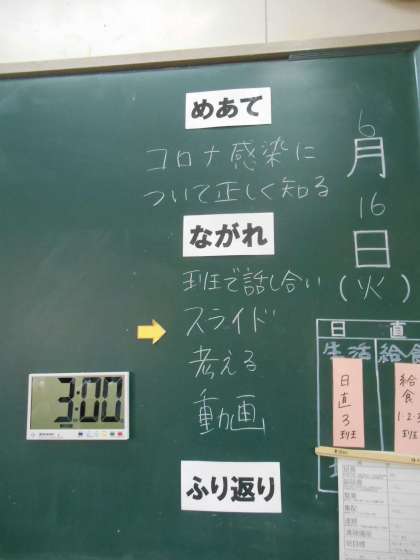 めあて
コロナ感染に
ついて正しく知る
ながれ
班で話し合い
スライド
考える
動画
ふり返り
6
月
16
日
(火)
3:00
日直
生活
給食
日直3班
給食